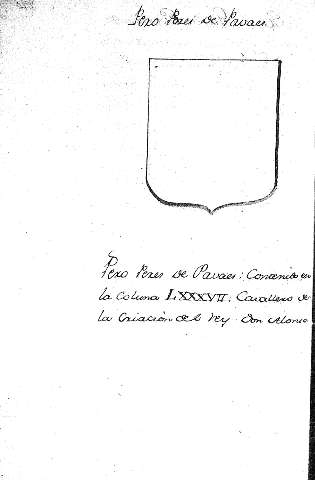 Pero Peres de Pavaes
Pero Peres de Pavaes: Contenido en
la Coluna LXXXVII: Cavallero de
la Criación del Rey Don Alonso